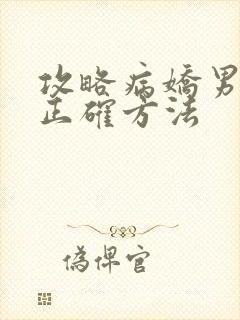 攻略病嬌男
正確方法
偽俾官